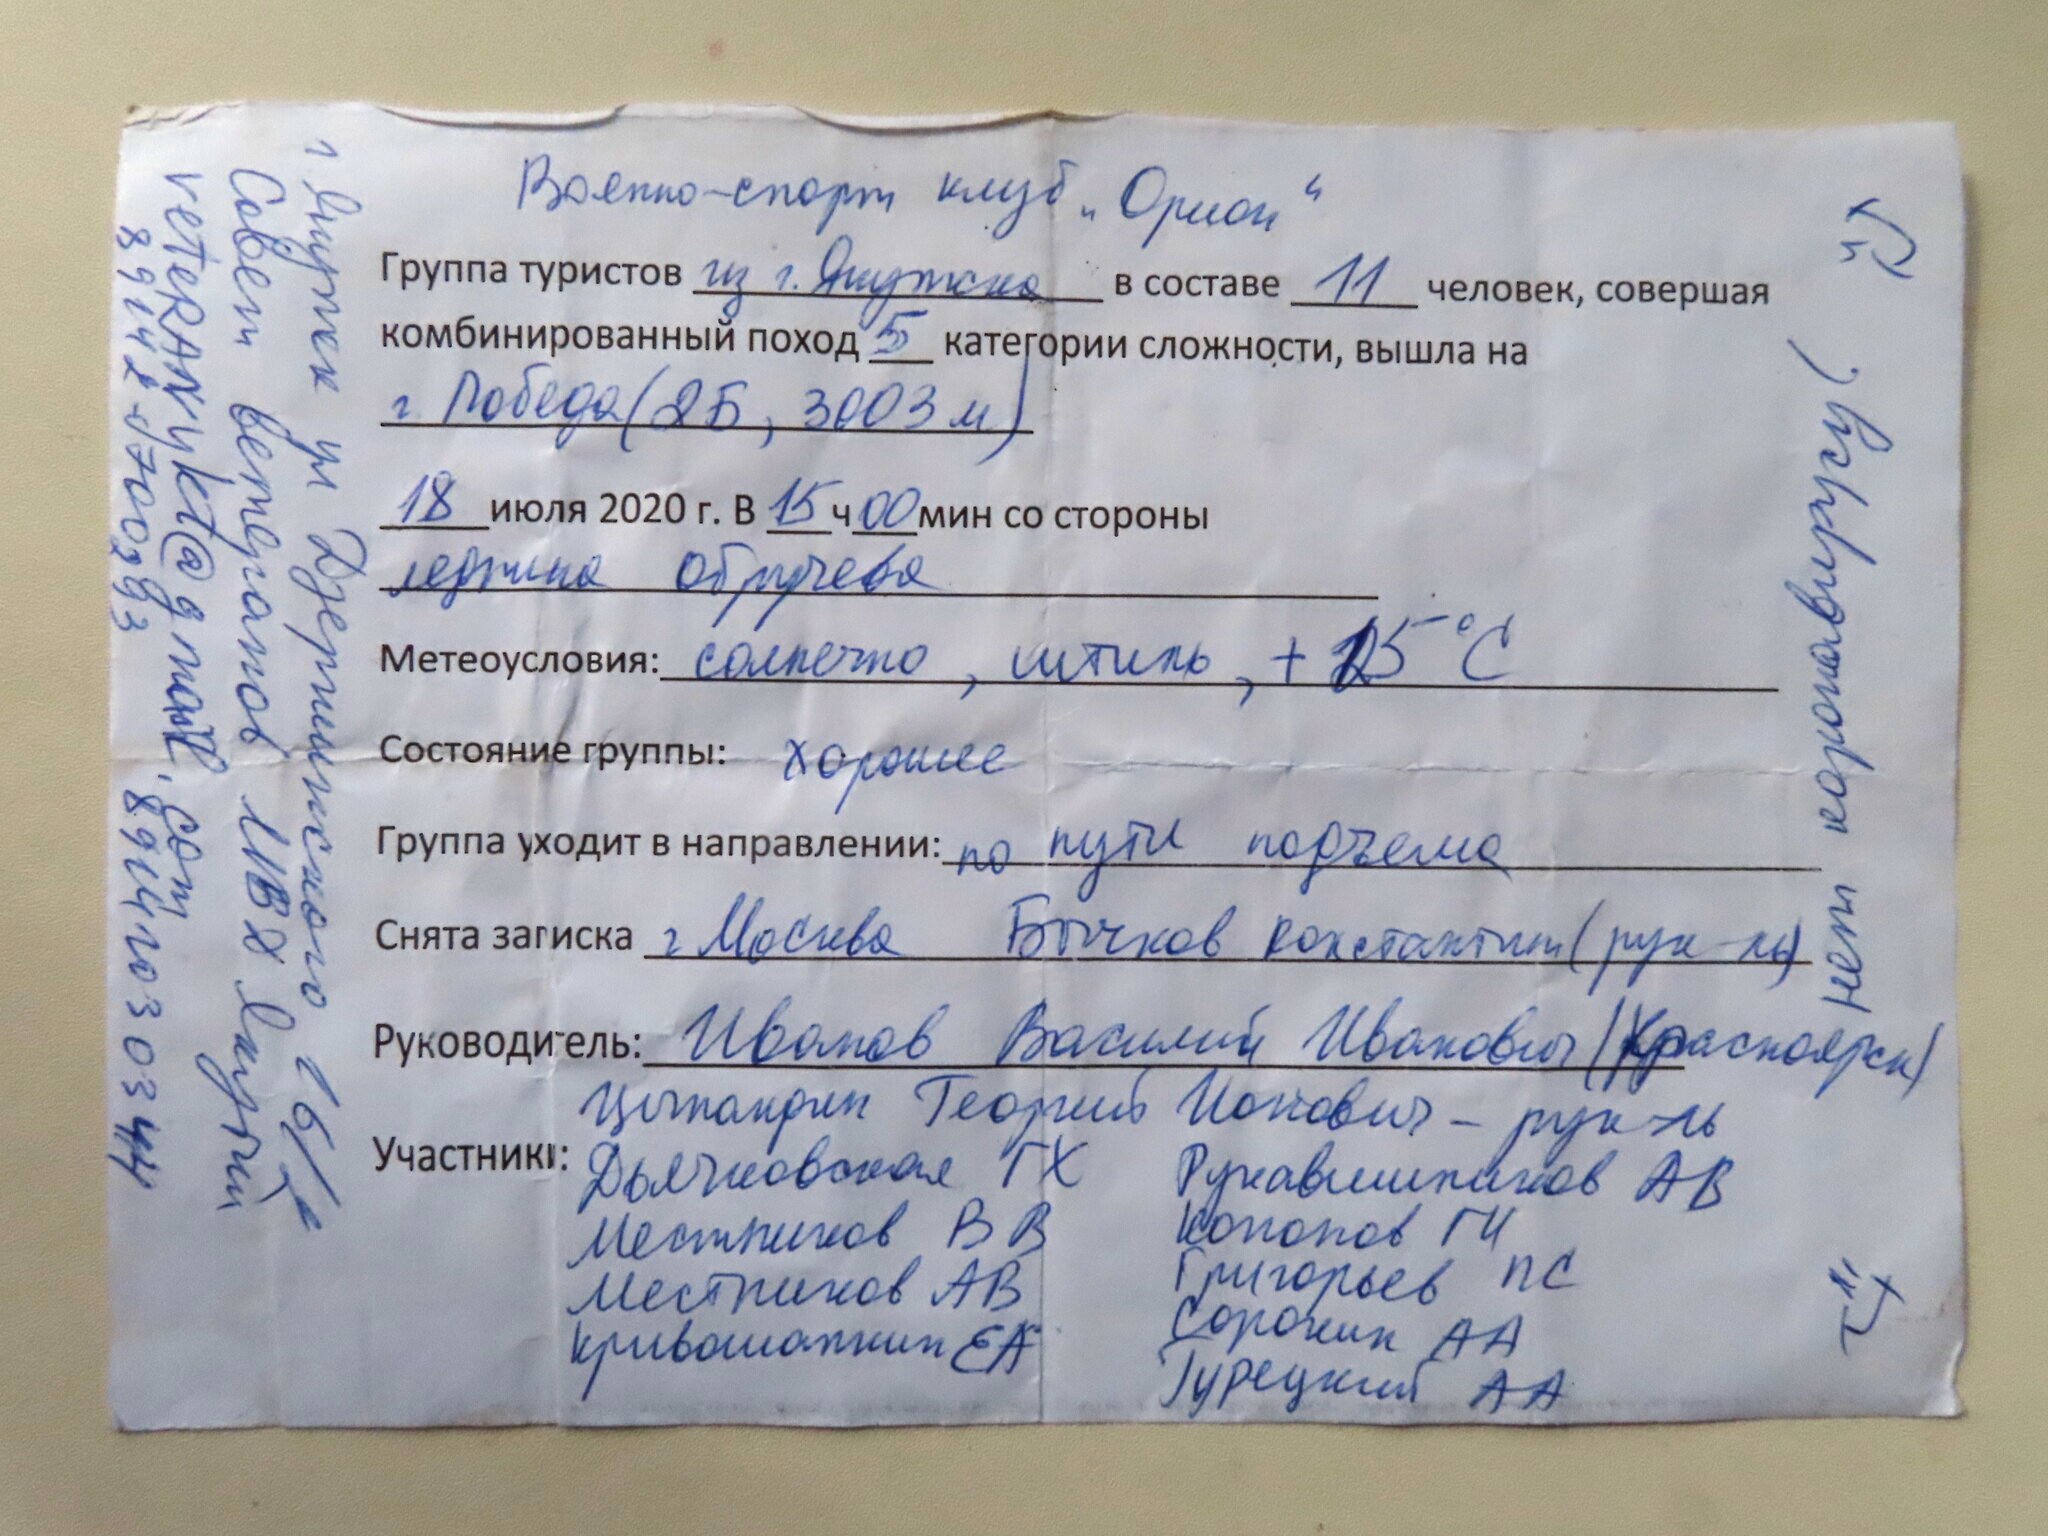 Военно-спорт клуб „Орион“
Группа туристов из г. Якутска в составе 11 человек, совершая
комбинированный поход 5 категории сложности, вышла на
г. Победа (2Б, 3003 м)
18 июля 2020 г. В 15 ч 00 мин со стороны
ледника Обручева
Метеоусловия: солнечно, штиль, + 15 °C
Состояние группы: хорошее
Группа уходит в направлении: по пути подъема
Снята записка г Москва Бычков Константин (рук-ль)
Руководитель: Иванов Василий Иванович (Красноярск)
Цыпандин Георгий Ионович - рук-ль
Участники:
Дьячковская ГХ
Местников В В
Местников АВ
Кривошапкин ЕА
Рукавишников АВ
Кононов ГИ
Григорьев ПС
Сорокин АА
Турецкий АА
г. Якутск ул Дзержинского
Совет ветеранов МВД Якутии
veteranykt@gmail.com
89142 89141030344
нет коронавирусу!